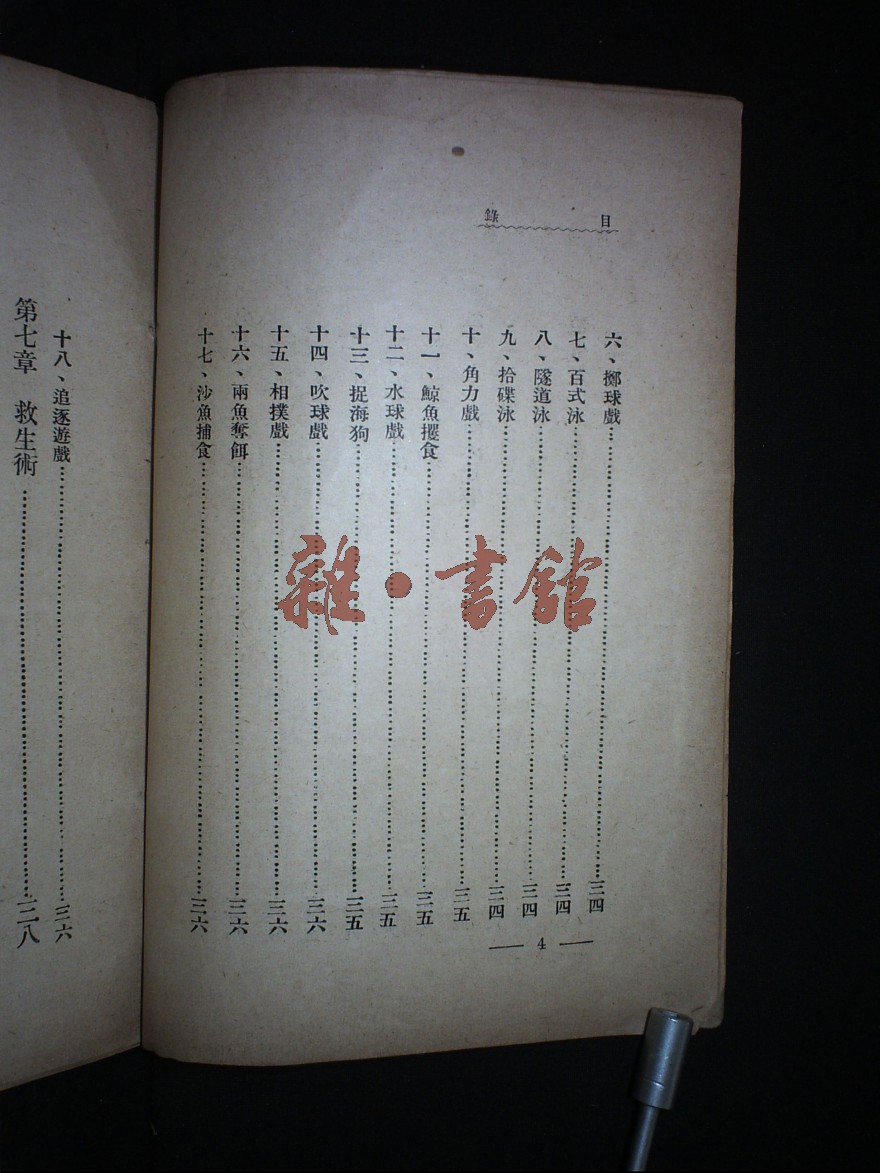 目錄
六、擲球戲……三四
七、百式泳……三四
八、隧道泳……三四
九、拾碟泳……三四
十、角力戲……三五
十一、鯨魚攫食……三五
十二、水球戲……三五
十三、捉海狗……三五
十四、吹球戲……三六
十五、相撲戲……三六
十六、兩魚奪餌……三六
十七、沙魚捕食……三六
— 4 —
十八、追逐遊戲……三六
第七章 救生術……三八
雜·書館